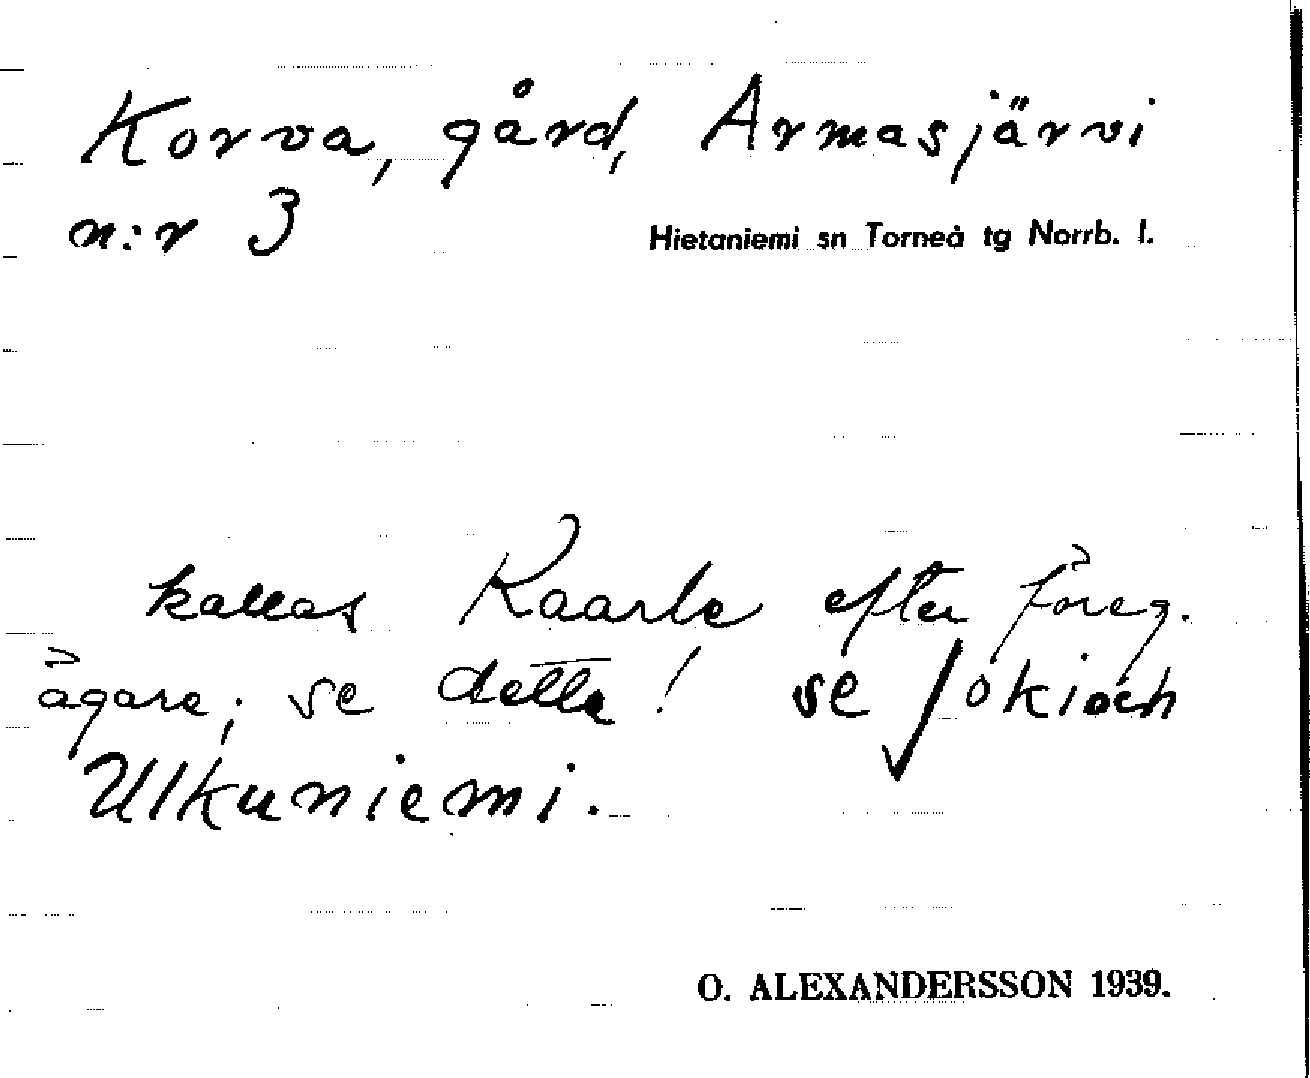 Korva, gård, Armasjärvi
n:r 3
Hietaniemi sn Torneå tg Norrb. l.
kallas Kaarle efter föreg.
ägare; se detta! se Joki och
Ulkuniemi.
O. ALEXANDERSSON 1939.